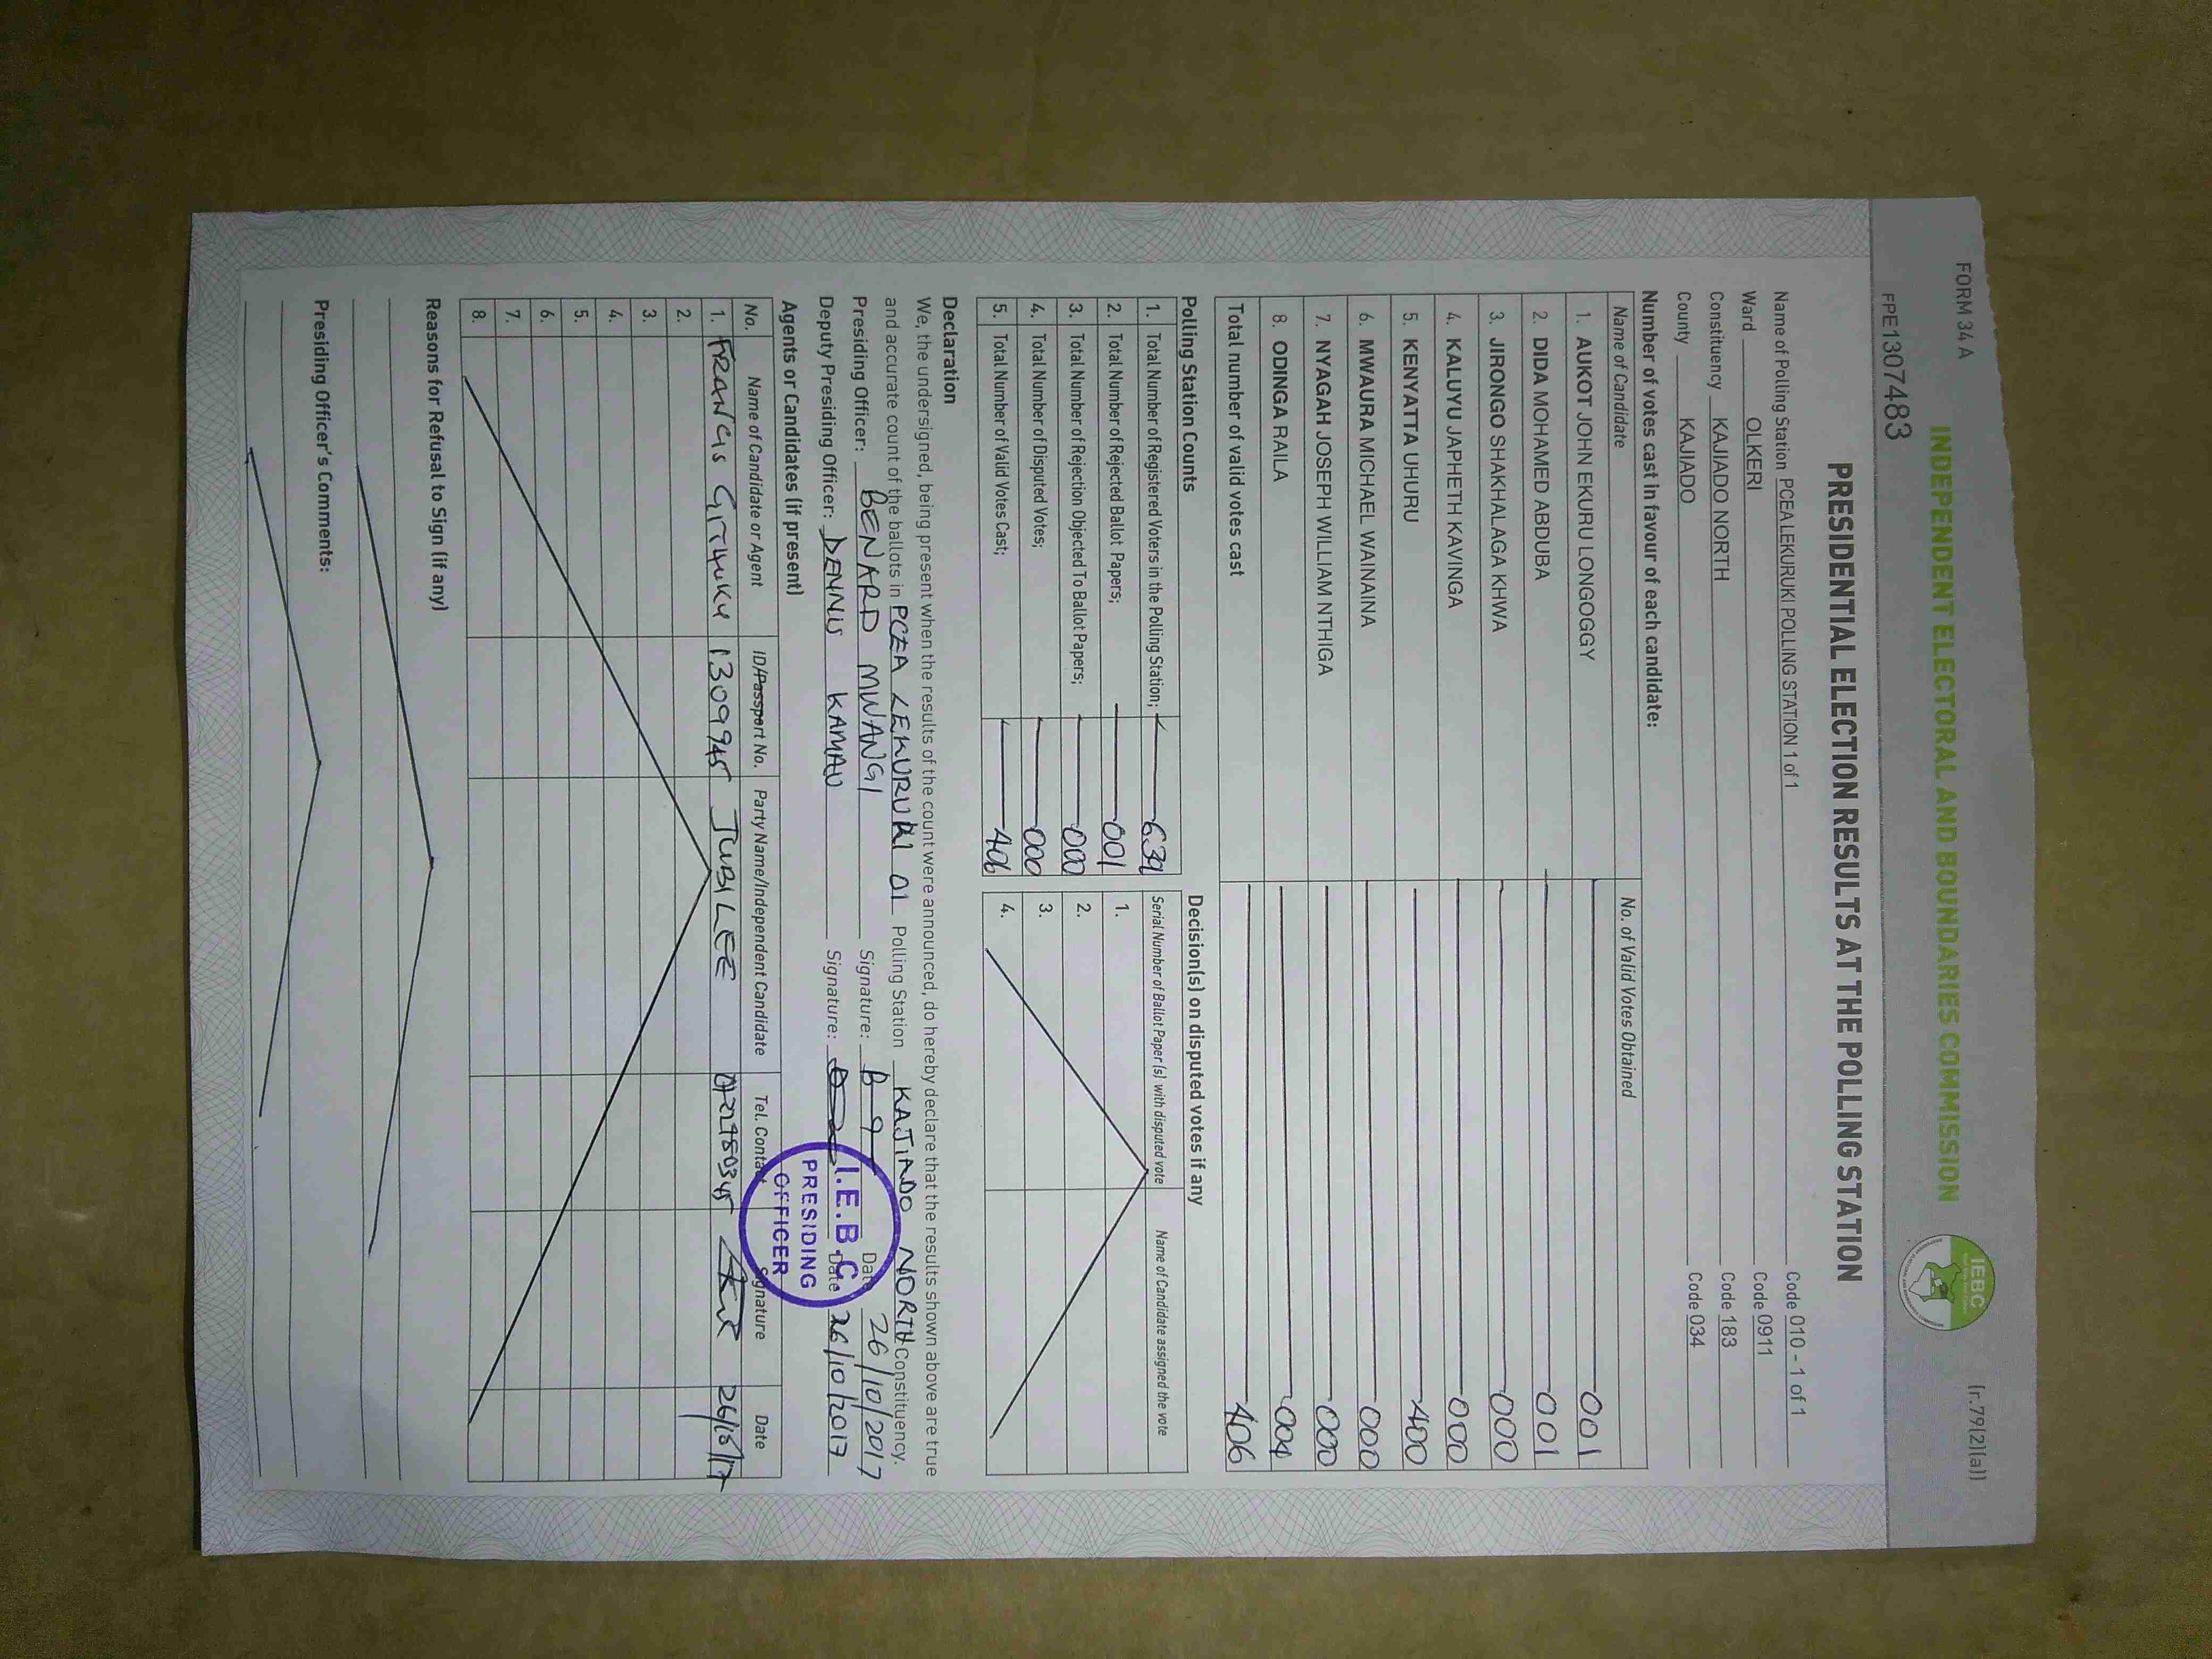 FORM 34 A
(r.79(2)(a))
INDEPENDENT ELECTORAL AND BOUNDARIES COMMISSION
IEBC
FPE1307483
PRESIDENTIAL ELECTION RESULTS AT THE POLLING STATION
Name of Polling Station PCEA LEKURUKI POLLING STATION 1 of 1 Code 010 - 1 of 1
Ward OLKERI Code 0911
Constituency KAJIADO NORTH Code 183
County KAJIADO Code 034
Number of votes cast in favour of each candidate:
Name of Candidate No. of Valid Votes Obtained
1. AUKOT JOHN EKURU LONGOGGY 001
2. DIDA MOHAMED ABDUBA 001
3. JIRONGO SHAKHALAGA KHWA 000
4. KALUYU JAPHETH KAVINGA 000
5. KENYATTA UHURU 400
6. MWAURA MICHAEL WAINAINA 000
7. NYAGAH JOSEPH WILLIAM NTHIGA 000
8. ODINGA RAILA 004
Total number of valid votes cast 406
Polling Station Counts
1. Total Number of Registered Voters in the Polling Station; 639
2. Total Number of Rejected Ballot Papers; 001
3. Total Number of Rejection Objected To Ballot Papers; 000
4. Total Number of Disputed Votes; 000
5. Total Number of Valid Votes Cast; 406
Decision(s) on disputed votes if any
Serial Number of Ballot Paper (s) with disputed vote Name of Candidate assigned the vote
1.
2.
3.
4.
Declaration
We, the undersigned, being present when the results of the count were announced, do hereby declare that the results shown above are true
and accurate count of the ballots in PCEA LEKURUKI 01 Polling Station KAJIADO NORTH Constituency.
Presiding Officer: BENARD MWANGI Signature: Date 26/10/2017
Deputy Presiding Officer: DENNIS KAMAU Signature: Date 26/10/2017
I.E.B.C.
PRESIDING
OFFICER
Agents or Candidates (if present)
No. Name of Candidate or Agent ID/Passport No. Party Name/Independent Candidate Tel. Contact Signature Date
1. FRANCIS 1309945 JUBILEE 26/10/17
2.
3.
4.
5.
6.
7.
8.
Reasons for Refusal to Sign (if any)
Presiding Officer's Comments: